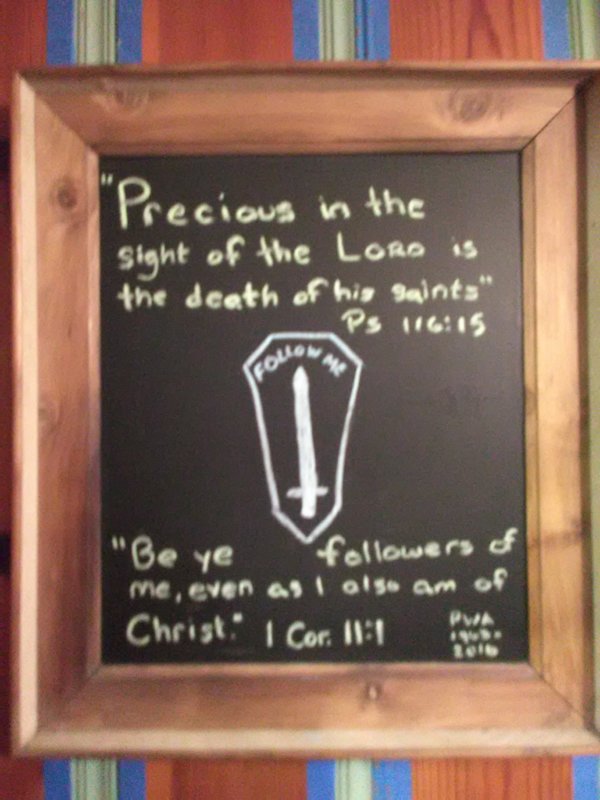 "Precious in the
sight of the LORD is
the death of his saints"
Ps 116:15
FOLLOW ME
"Be ye followers of
me, even as I also am of
Christ." 1 Cor. 11:1
2016